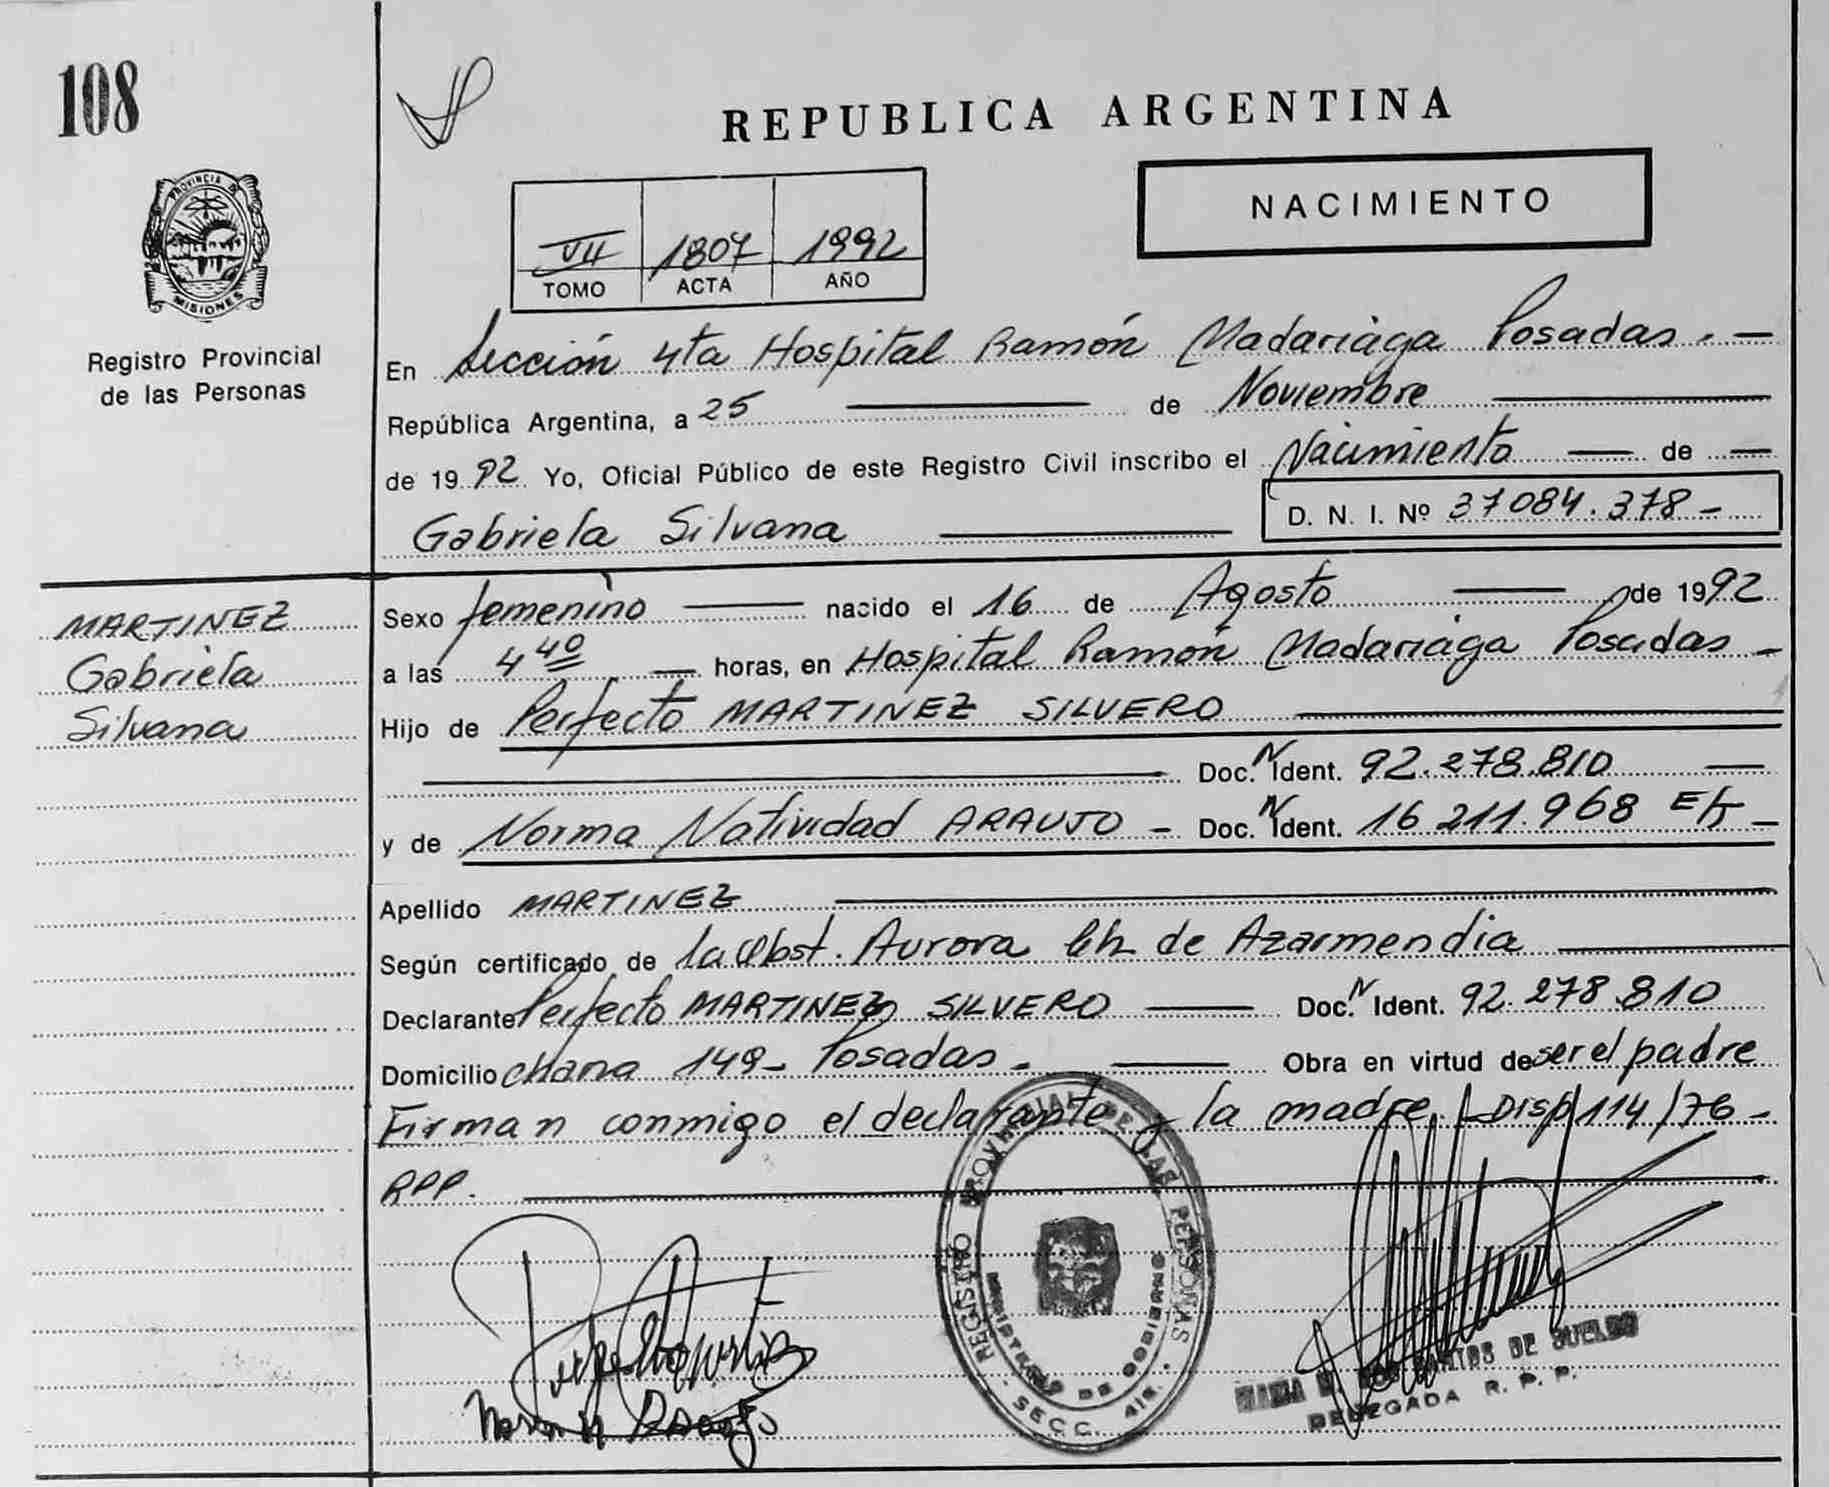 108
REPUBLICA ARGENTINA
PROVINCIA DE
MISIONES
Registro Provincial
de las Personas
NACIMIENTO
VII 1807 1992
TOMO ACTA AÑO
En Sección 4ta Hospital Ramón Madariaga Posadas. —
República Argentina, a 25 — de Noviembre —
de 1992 Yo, Oficial Público de este Registro Civil inscribo el Nacimiento — de —
Gabriela Silvana — D. N. I. Nº 37084.378 -
MARTINEZ
Gabriela
Silvana
Sexo femenino — nacido el 16 de Agosto — de 1992
a las 4 40 — horas, en Hospital Ramón Madariaga Posadas -
Hijo de Perfecto MARTINEZ SILVERO —
— Doc. N Ident. 92.278.810 —
y de Norma Natividad ARAUJO - Doc. N Ident. 16 211.968 -
Apellido MARTINEZ —
Según certificado de la Obst. Aurora Ch de Azarmendia —
Declarante Perfecto MARTINEZ SILVERO — Doc. N Ident. 92.278.810
Domicilio Chana 149 - Posadas - — Obra en virtud de ser el padre
Firman conmigo el declarante y la madre. Disp 114/76 -
RPP. —
REGISTRO PROVINCIAL DE LAS PERSONAS
MINISTERIO DE GOBIERNO
SECC. 4ta.
DE SUELDO
DELEGADA R. P. P.